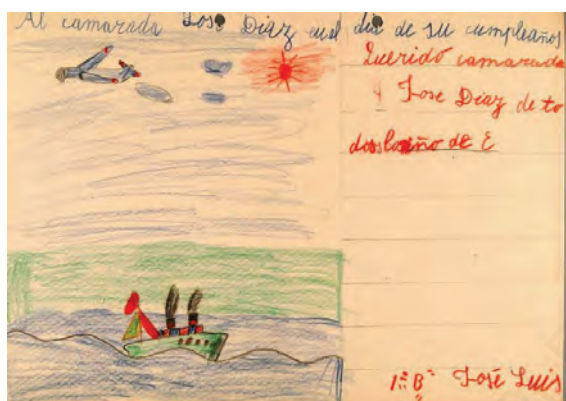 Al camarada Jose Diaz en el dia de su cumpleaños
Querido camarada
Jose Diaz de to
dos los niño de E
1º "B" José Luis